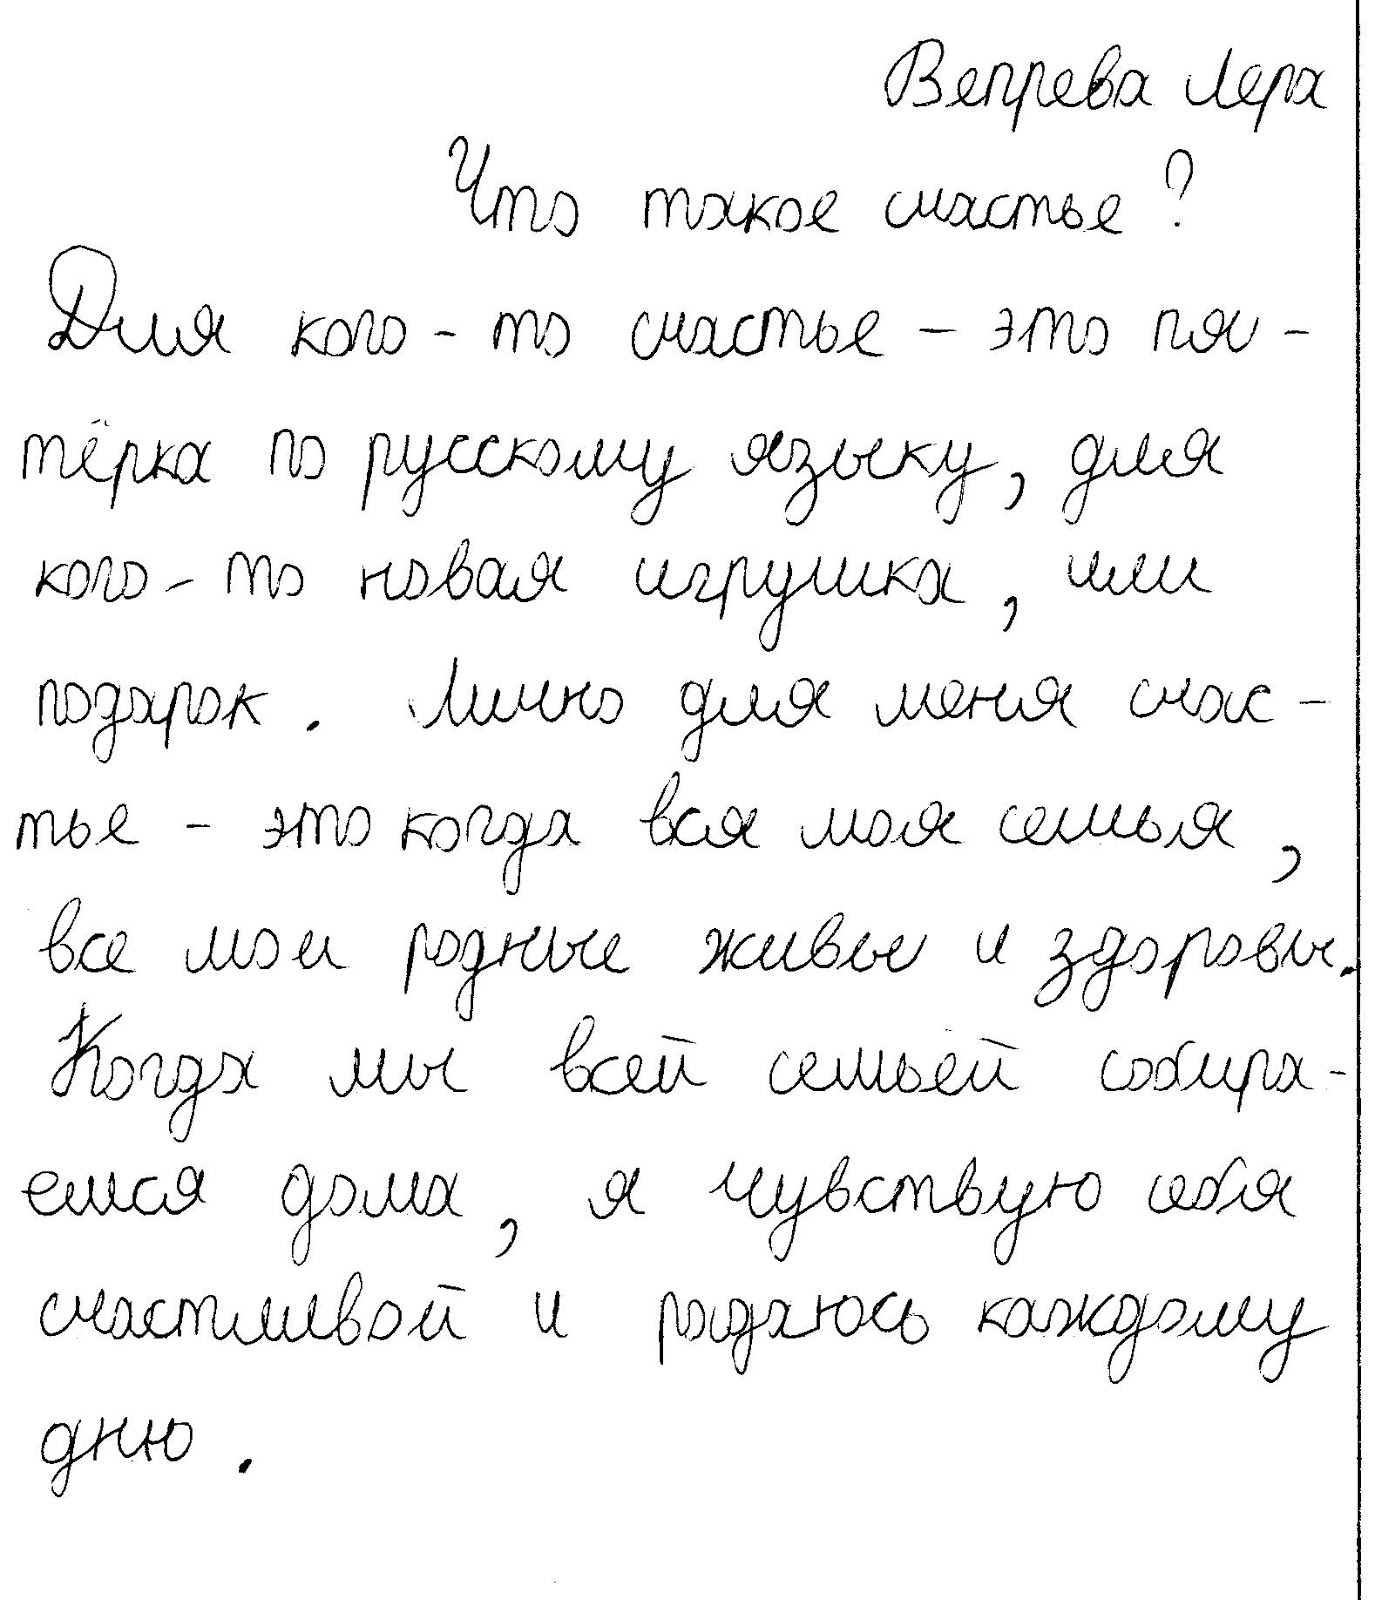 Вепрева Лера
Что такое счастье?
Для кого-то счастье – это пя-
тёрка по русскому языку, для
кого-то новая игрушка, или
подарок. Лично для меня счас-
тье – это когда вся моя семья,
все мои родные живы и здоровы.
Когда мы всей семьей собира-
емся дома, я чувствую себя
счастливой и радаюсь каждому
дню.